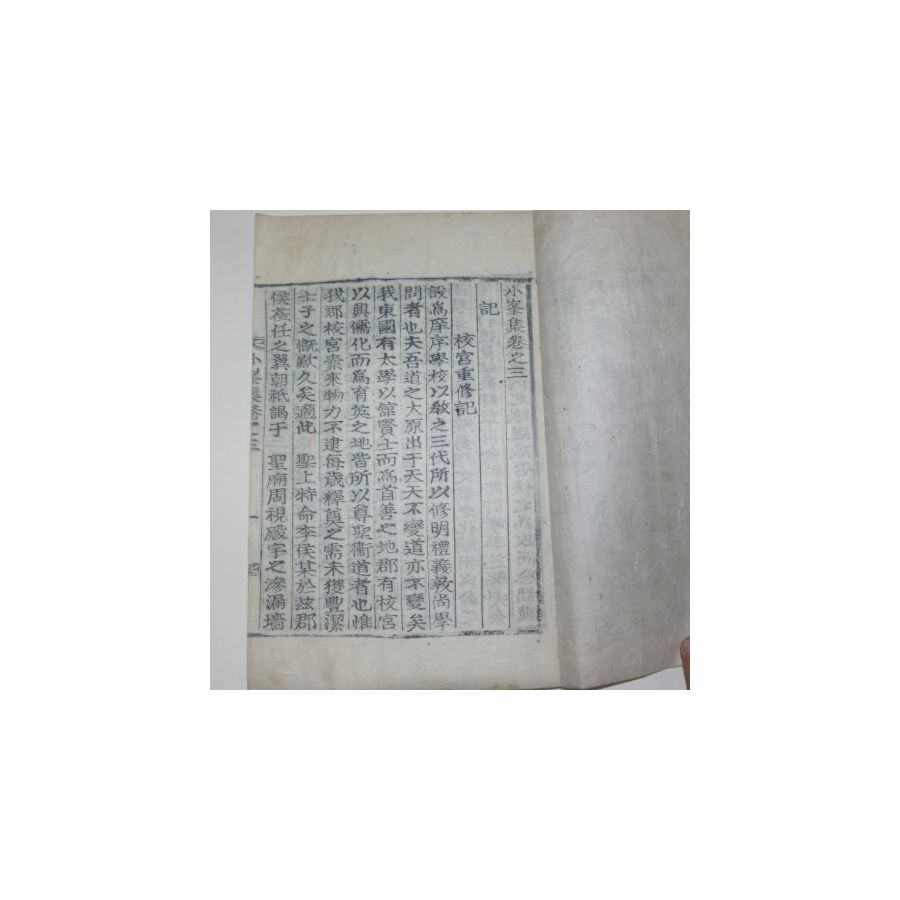 小峯集卷之三
記
校宮重修記
設爲庠序學校以敎之三代所以修明禮義敦尚學
問者也夫吾道之大原出于天天不變道亦不變矣
我東國有太學以館賢士而爲首善之地郡有校宮
以興儒化而爲育英之地皆所以尊聖衛道者也惟
我郡校宮素來物力不逮每歲釋奠之需未獲豐潔
士子之慨歎久矣適此 聖上特命李侯某於玆郡
侯莅任之翼朝祇謁于 聖廟周視殿宇之滲漏墻
小峯集卷之三 一